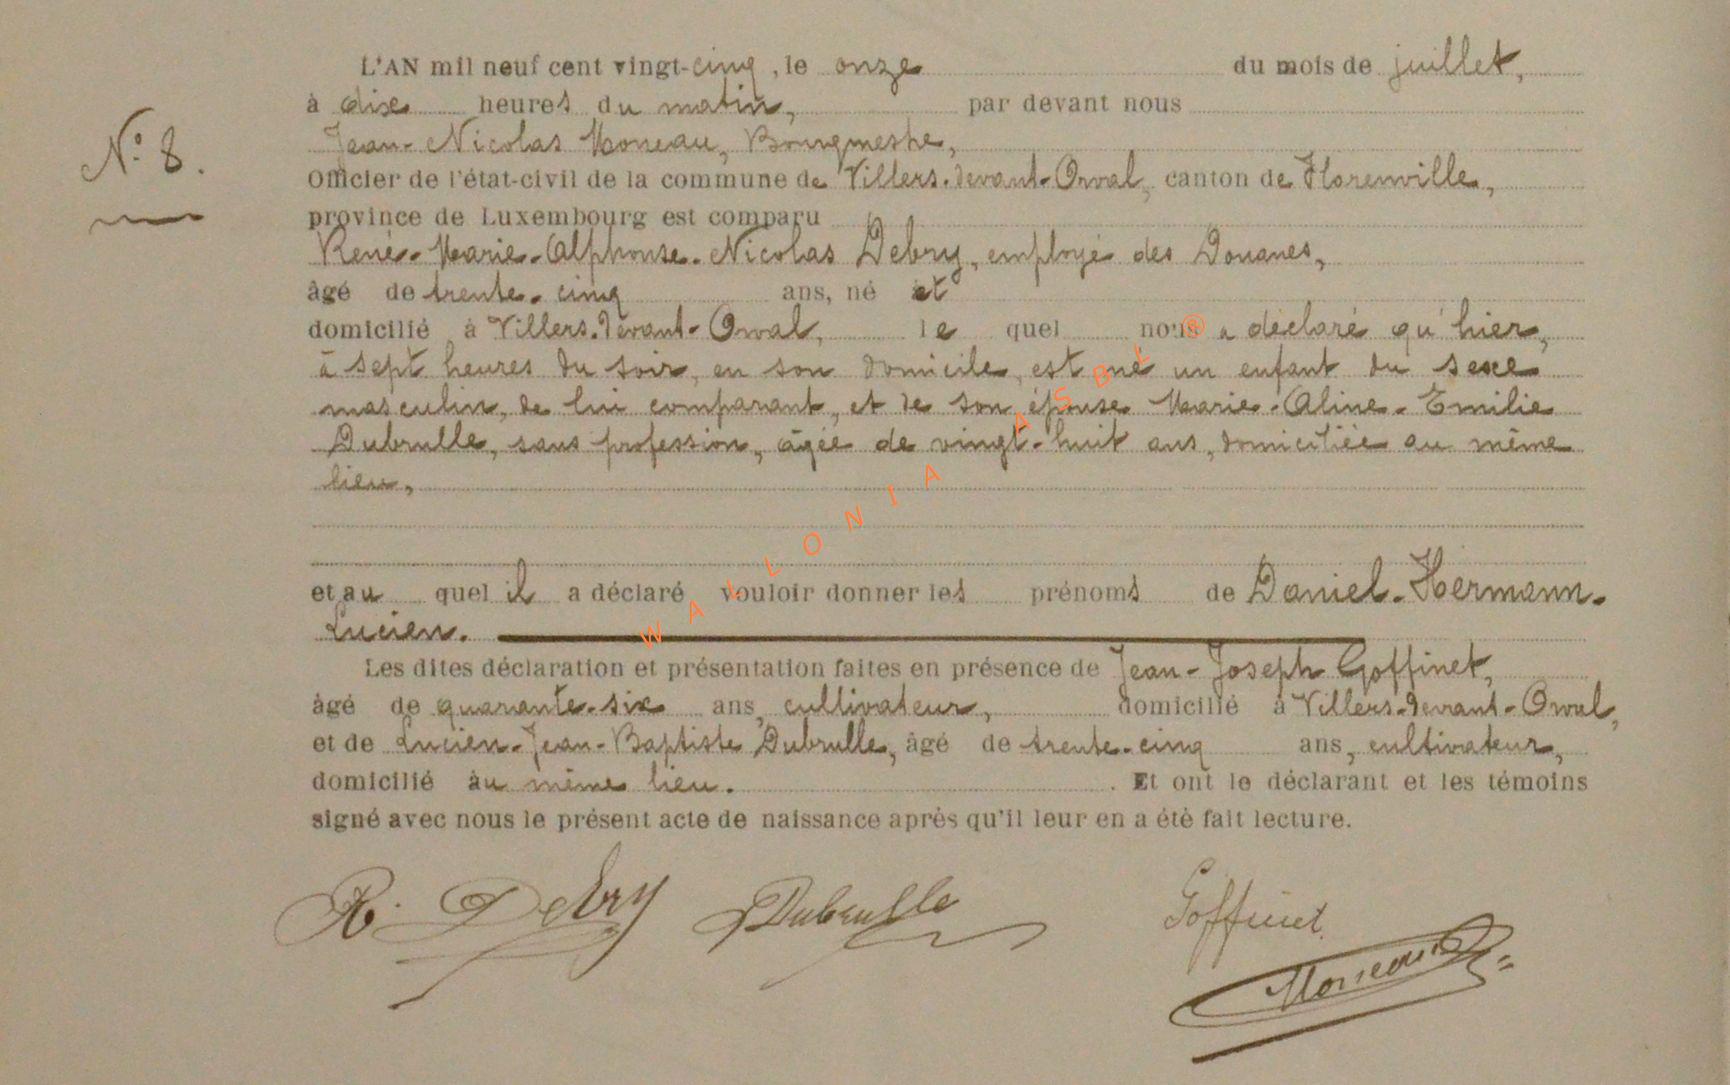 L'AN mil neuf cent vingt-cinq, le onze du mois de juillet,
à dix heures du matin, par devant nous
N° 8.
Jean-Nicolas Moneau, Bourgmestre,
Officier de l'état-civil de la commune de Villers-devant-Orval, canton de Florenville,
province de Luxembourg est comparu
René-Marie-Alphonse-Nicolas Debry, employé des Douanes,
âgé de trente-cinq ans, né et
domicilié à Villers-devant-Orval, le quel nous a déclaré qu'hier,
à sept heures du soir, en son domicile, est né un enfant du sexe
masculin, de lui comparant, et de son épouse Marie-Aline-Emilie
Dubrulle, sans profession, âgée de vingt-huit ans, domiciliée au même
lieu,
et au quel il a déclaré vouloir donner les prénoms de Daniel-Hermann-
Lucien.
Les dites déclaration et présentation faites en présence de Jean-Joseph Goffinet,
âgé de quarante-six ans, cultivateur, domicilié à Villers-devant-Orval,
et de Lucien-Jean-Baptiste Dubrulle, âgé de trente-cinq ans, cultivateur,
domicilié au même lieu. Et ont le déclarant et les témoins
signé avec nous le présent acte de naissance après qu'il leur en a été fait lecture.
R. Debry Dubrulle Goffinet
Moneau
WALLONIA ASBL ®